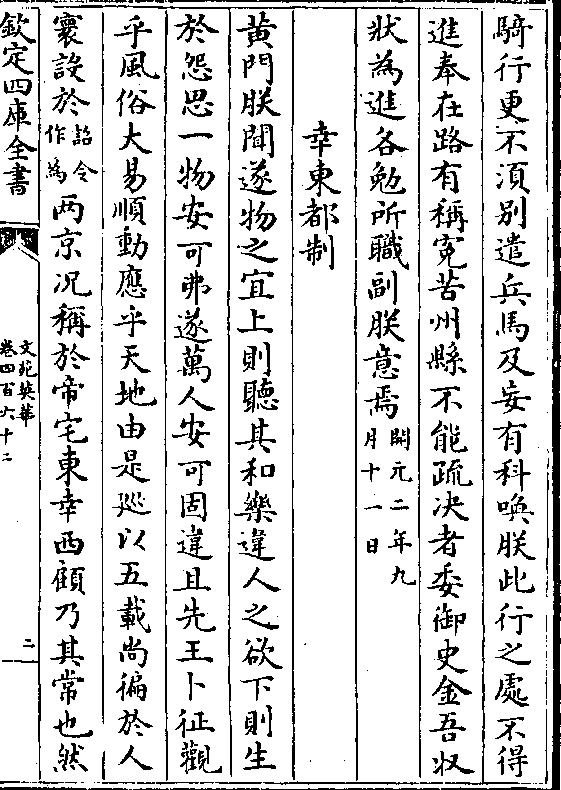 騎行更不湏别遣兵馬及妄有科喚朕此行之處不得
進奉在路有稱寃苦州縣不能疏決者委御史金吾収
狀為進各勉所職副朕意焉開元二年九月十一日
幸東都制
黄門朕聞遂物之宜上則聽其和樂違人之欲下則生
於怨思一物安可弗遂萬人安可固違且先王卜征觀
乎風俗大易順動應乎天地由是廵以五載尚徧於人
寰設於詔令作為两京况稱於帝宅東幸西顧乃其常也然
欽定四庫全書
文苑英華
卷四百六十二
二